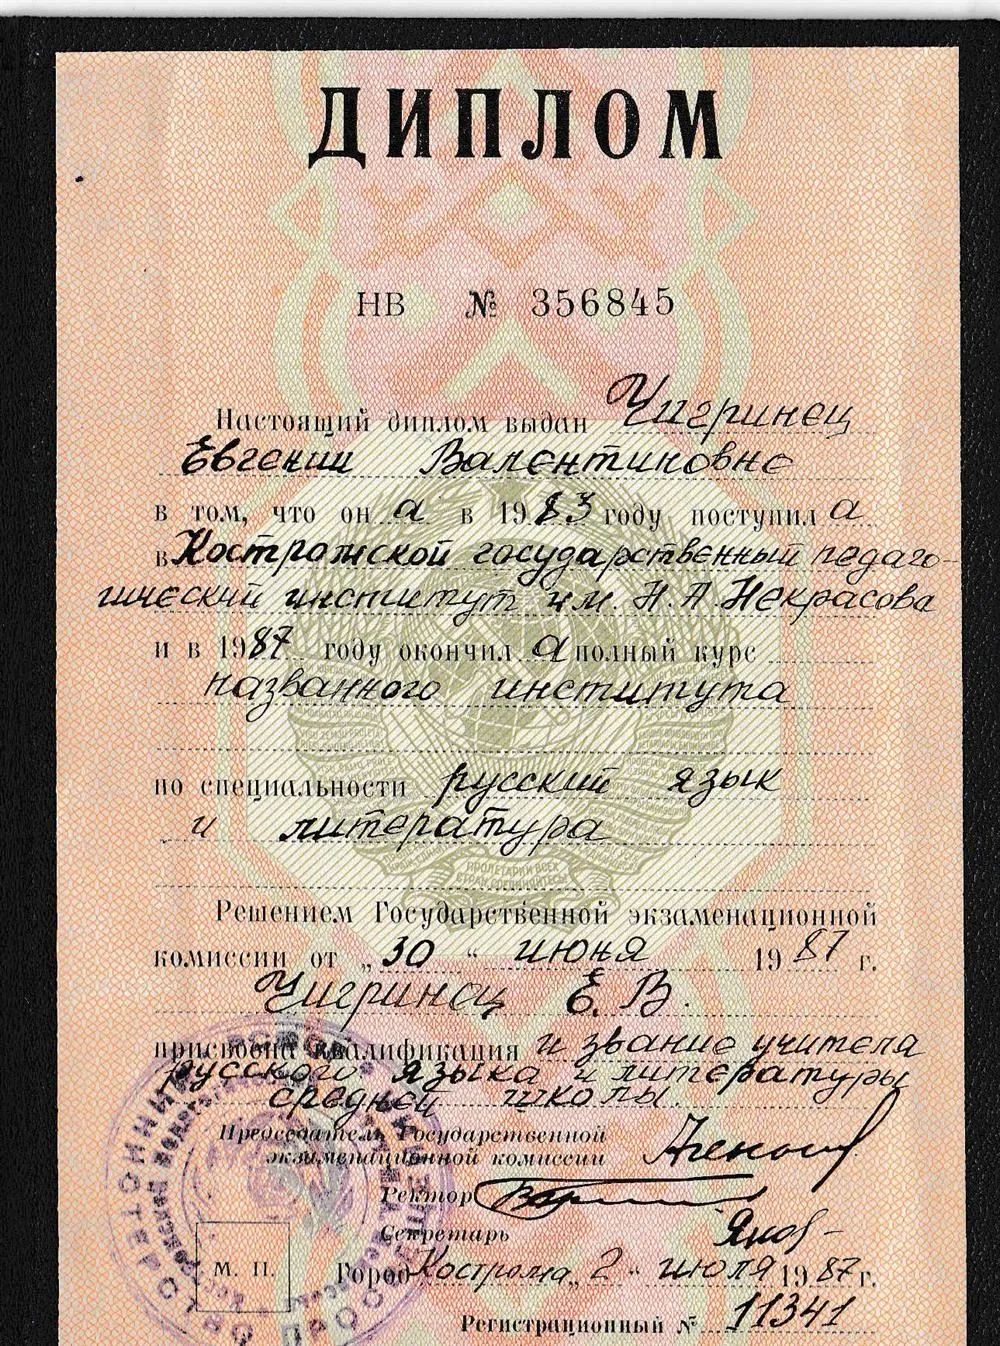 ДИПЛОМ
НВ № 356845
Настоящий диплом выдан Чигринец
Евгении Валентиновне
в том, что он а в 1983 году поступил а
в Костромской государственный педаго-
гический институт им. Н.А.Некрасова
и в 1987 году окончил а полный курс
названного института
по специальности русский язык
и литература
Решением Государственной экзаменационной
комиссии от „30“ июня 1987 г.
Чигринец Е.В.
присвоена квалификация и звание учителя
русского языка и литературы
средней школы.
Председатель Государственной
экзаменационной комиссии
Ректор
Секретарь
М. П.
Город Кострома „2“ июля 1987 г.
Регистрационный № 11341
ПРОЛЕТАРИИ ВСЕХ
СТРАН, СОЕДИНЯЙТЕСЬ!